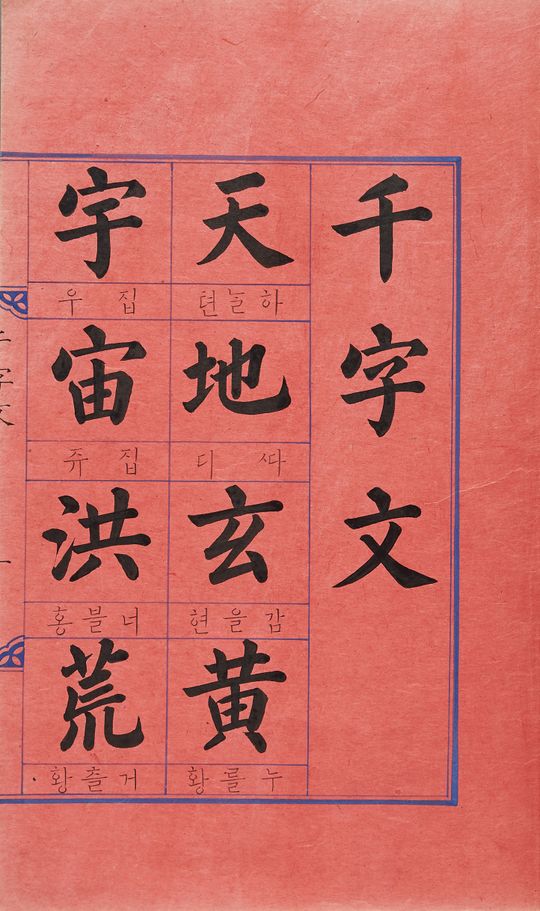 千字文
天
하늘텬
地
ᄯᅡ디
玄
감을현
黄
누를황
宇
집우
宙
집쥬
洪
너블홍
荒
거츨황